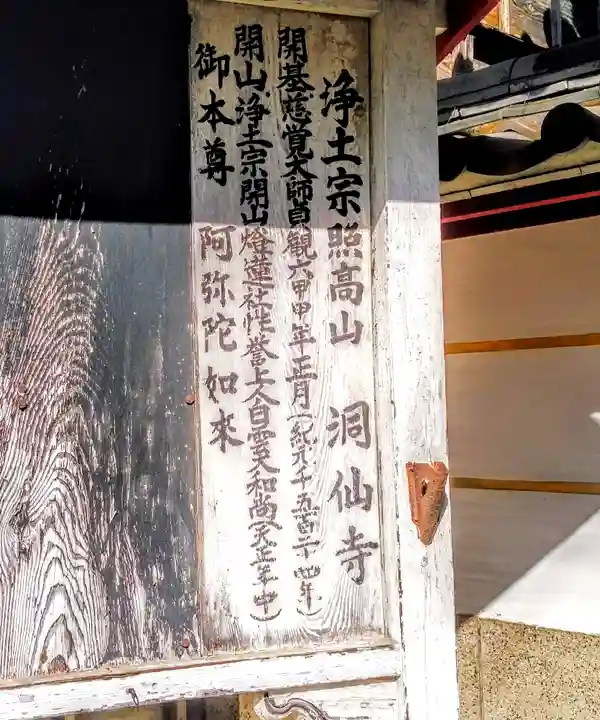 浄土宗照高山 洞仙寺
開基慈覚大師貞観六甲申年正月(紀元千五百二十四年)
開山浄土宗開山燈蓮社性誉上人白雲大和尚(天正年中)
御本尊 阿弥陀如来